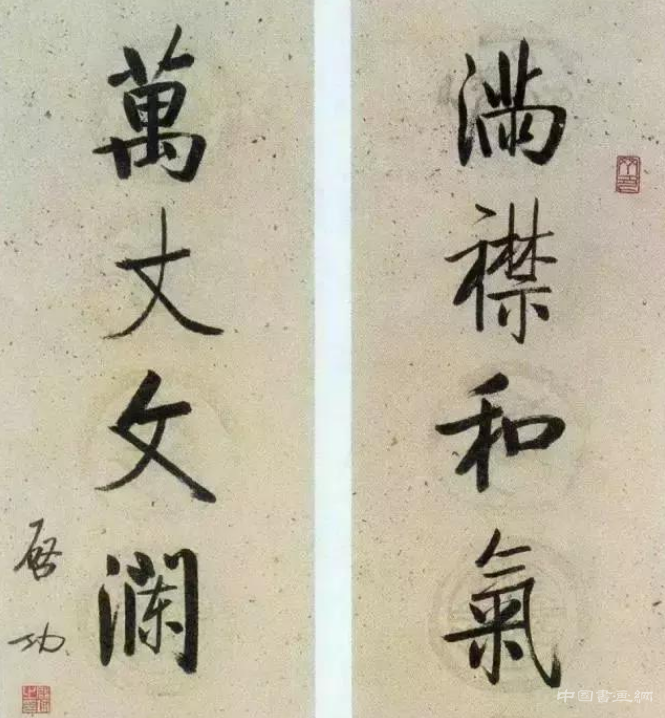 满襟和氣
萬丈文澜
启功
中国書画網